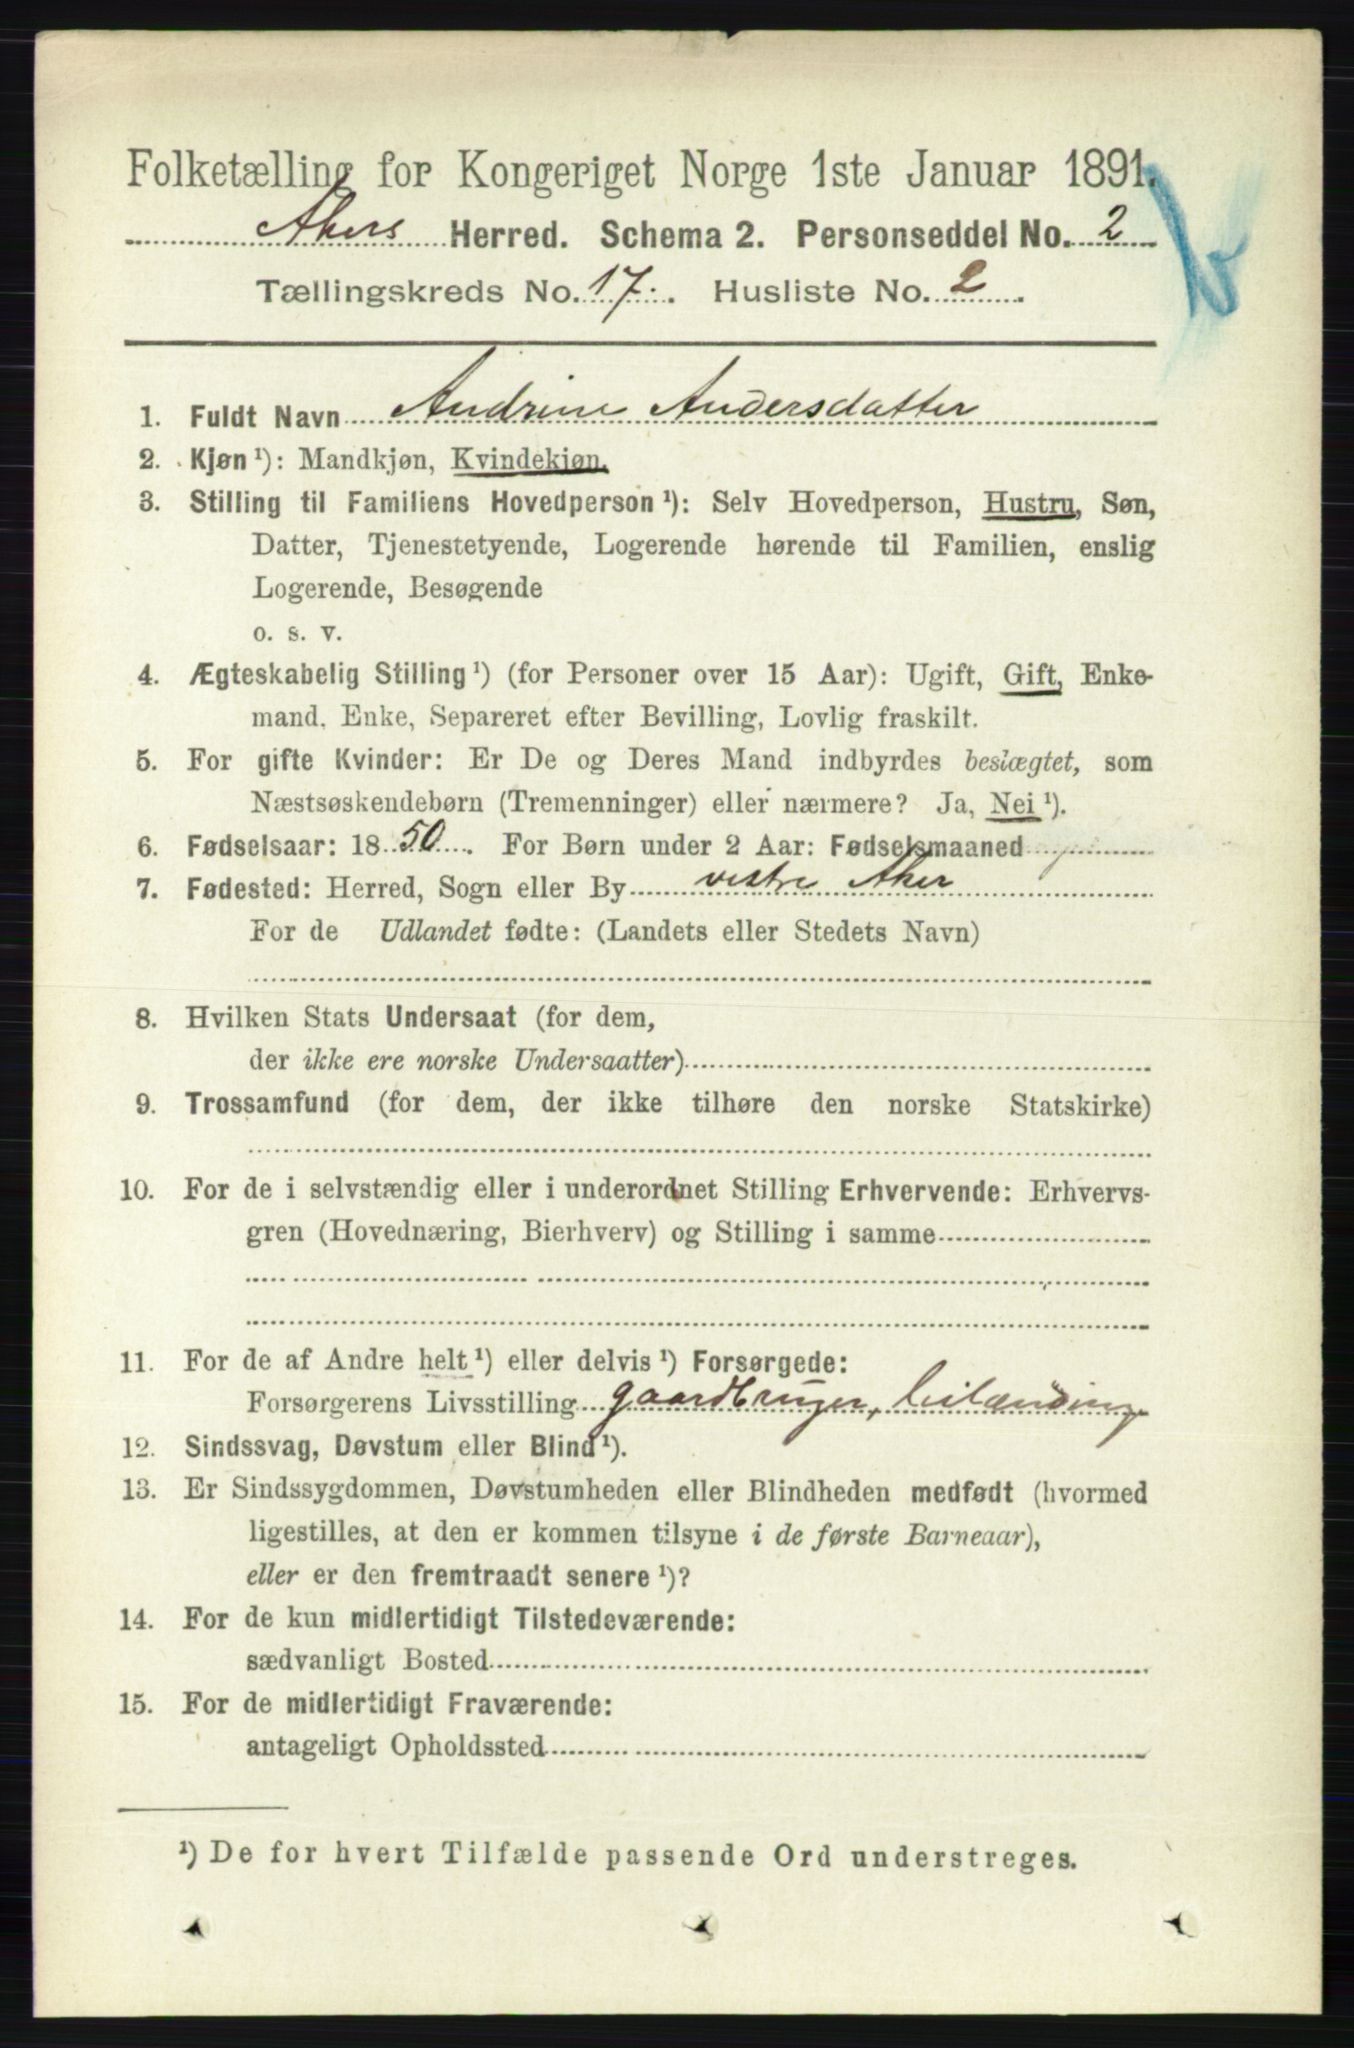 Folketælling for Kongeriget Norge 1ste Januar 1891.
Akers Herred. Schema 2. Personseddel No. 2
Tællingskreds No. 17. Husliste No. 2.
1. Fuldt Navn Andrine Andersdatter
2. Kjøn¹): Mandkjøn, Kvindekjøn.
3. Stilling til Familiens Hovedperson¹): Selv Hovedperson, Hustru, Søn,
Datter, Tjenestetyende, Logerende hørende til Familien, enslig
Logerende, Besøgende
o. s. v.
4. Ægteskabelig Stilling¹) (for Personer over 15 Aar): Ugift, Gift, Enke-
mand, Enke, Separeret efter Bevilling, Lovlig fraskilt.
5. For gifte Kvinder: Er De og Deres Mand indbyrdes beslægtet, som
Næstsøskendebørn (Tremenninger) eller nærmere? Ja, Nei¹).
6. Fødselsaar: 1850. For Børn under 2 Aar: Fødselsmaaned
7. Fødested: Herred, Sogn eller By vestre Aker
For de Udlandet fødte: (Landets eller Stedets Navn)
8. Hvilken Stats Undersaat (for dem,
der ikke ere norske Undersaatter)
9. Trossamfund (for dem, der ikke tilhøre den norske Statskirke)
10. For de i selvstændig eller i underordnet Stilling Erhvervende: Erhvervs-
gren (Hovednæring, Bierhverv) og Stilling i samme
11. For de af Andre helt¹) eller delvis¹) Forsørgede:
Forsørgerens Livsstilling gaardbruger, leilænding
12. Sindssvag, Døvstum eller Blind¹).
13. Er Sindssygdommen, Døvstumheden eller Blindheden medfødt (hvormed
ligestilles, at den er kommen tilsyne i de første Barneaar),
eller er den fremtraadt senere¹)?
14. For de kun midlertidigt Tilstedeværende:
sædvanligt Bosted
15. For de midlertidigt Fraværende:
antageligt Opholdssted
¹) De for hvert Tilfælde passende Ord understreges.